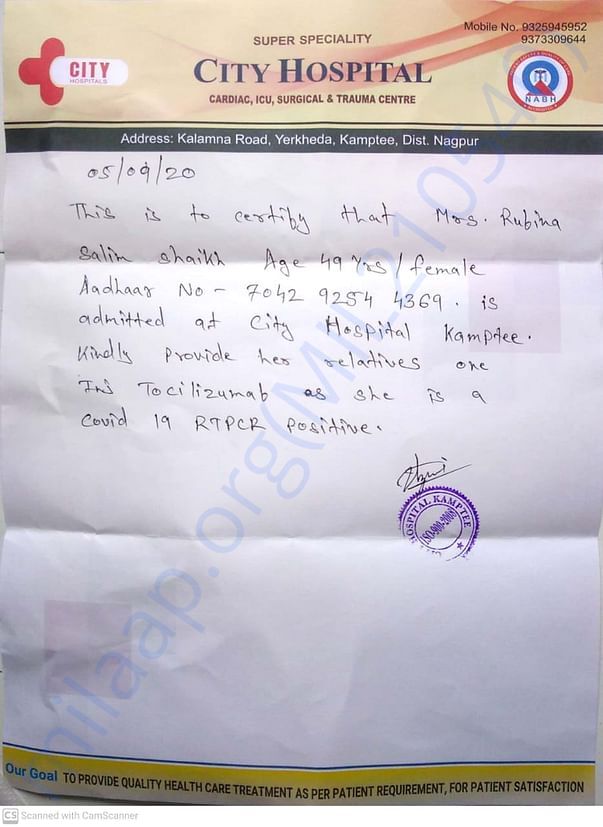 Mobile No. 9325945952
9373309644
SUPER SPECIALITY
CITY HOSPITAL
CARDIAC, ICU, SURGICAL & TRAUMA CENTRE
CITY
HOSPITALS
NABH
Address: Kalamna Road, Yerkheda, Kamptee, Dist. Nagpur
05/09/20
This is to certify that Mrs. Rubina
Salim Shaikh Age 49 Yrs / female
Aadhaar No - 7042 9254 4369. is
admitted at City Hospital Kamptee.
Kindly Provide her relatives one
Inj Tocilizumab as she is a
Covid 19 RTPCR Positive.
HOSPITAL KAMPTEE
milaap.org
Our Goal TO PROVIDE QUALITY HEALTH CARE TREATMENT AS PER PATIENT REQUIREMENT, FOR PATIENT SATISFACTION
CS Scanned with CamScanner